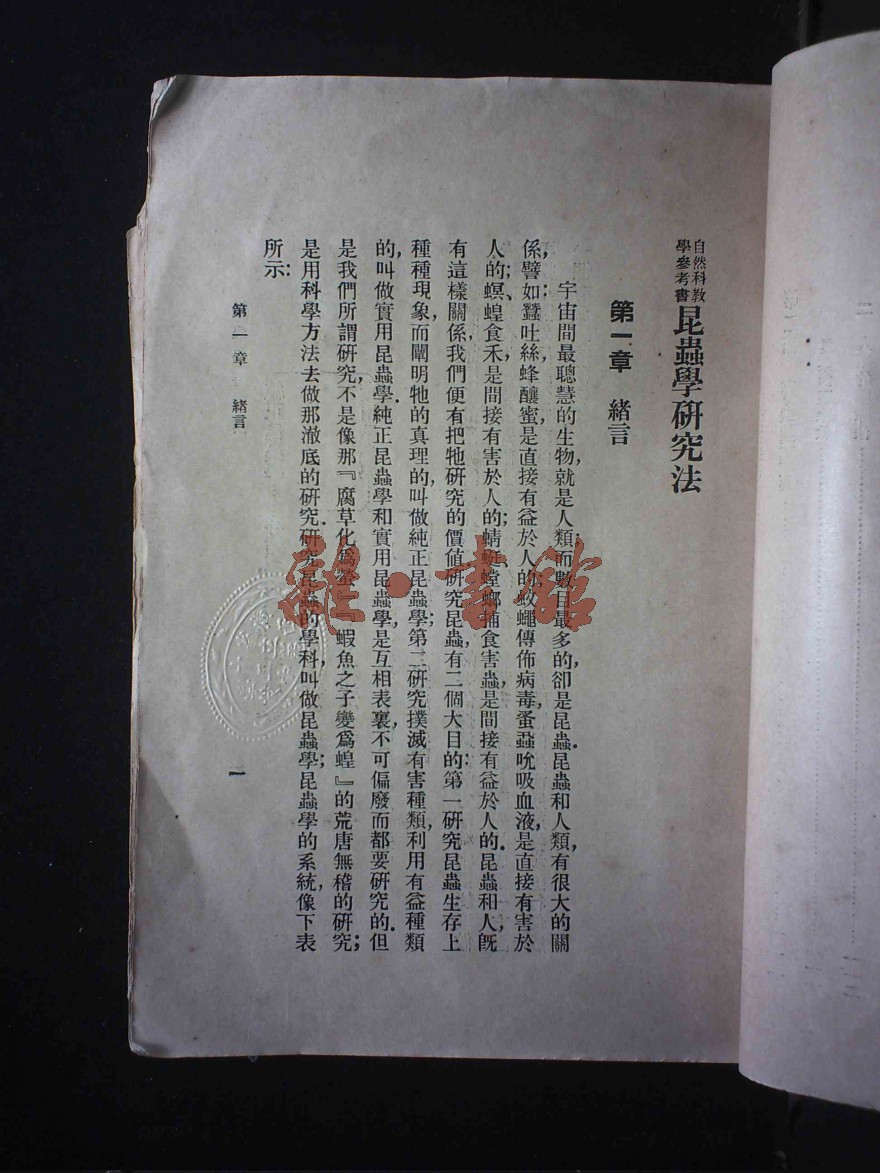 自然科教
學參考書
昆蟲學研究法
第一章　緒言
宇宙間最聰慧的生物，就是人類；而數目最多的，卻是昆蟲．昆蟲和人類，有很大的關
係，譬如：蠶吐絲，蜂釀蜜，是直接有益於人的；蚊蠅傳佈病毒，蚤蝨吮吸血液，是直接有害於
人的；螟、蝗食禾，是間接有害於人的；蜻蜓、螳螂捕食害蟲，是間接有益於人的．昆蟲和人，旣
有這樣關係，我們便有把牠研究的價值．研究昆蟲，有二個大目的：第一研究昆蟲生存上
種種現象，而闡明牠的真理的，叫做純正昆蟲學；第二研究撲滅有害種類，利用有益種類
的，叫做實用昆蟲學．純正昆蟲學和實用昆蟲學，是互相表裏，不可偏廢而都要研究的．但
是我們所謂研究，不是像那『腐草化爲螢』『蝦魚之子變爲蝗』的荒唐無稽的研究；
是用科學方法去做那澈底的研究．研究昆蟲的學科，叫做昆蟲學；昆蟲學的系統，像下表
所示：
第一章　緒言
一
雜·書館